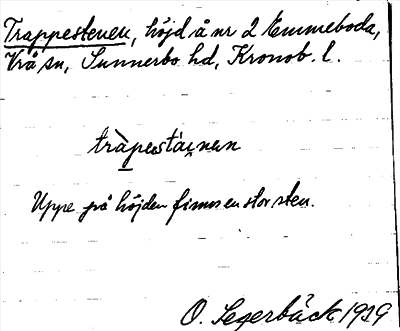 Trappestenen, höjd å nr 2 Emmeboda,
Vrå sn, Sunnerbo hd, Kronob. l.
tràpestáinen
Uppe på höjden finns en stor sten.
O. Segerbäck 1919